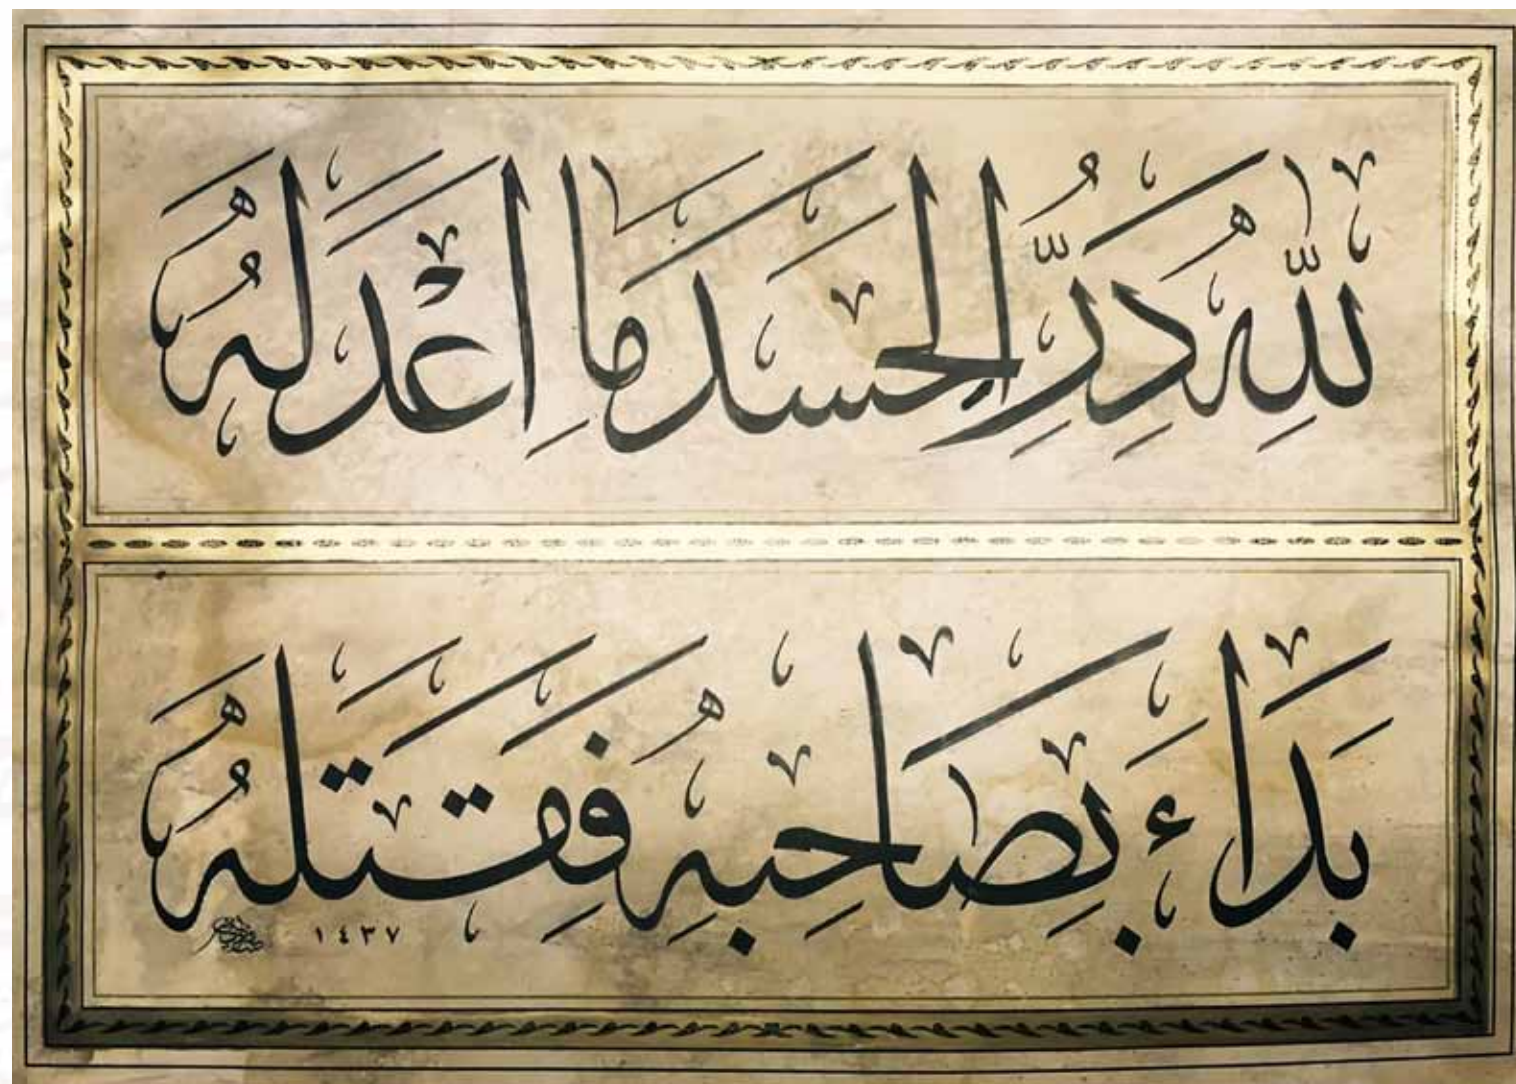 للهِ دَرُّ الحَسَدِ مَا اَعْدَلَهُ
بَدَاءَ بِصَاحِبِهِ فَقَتَلَهُ
١٤٣٧